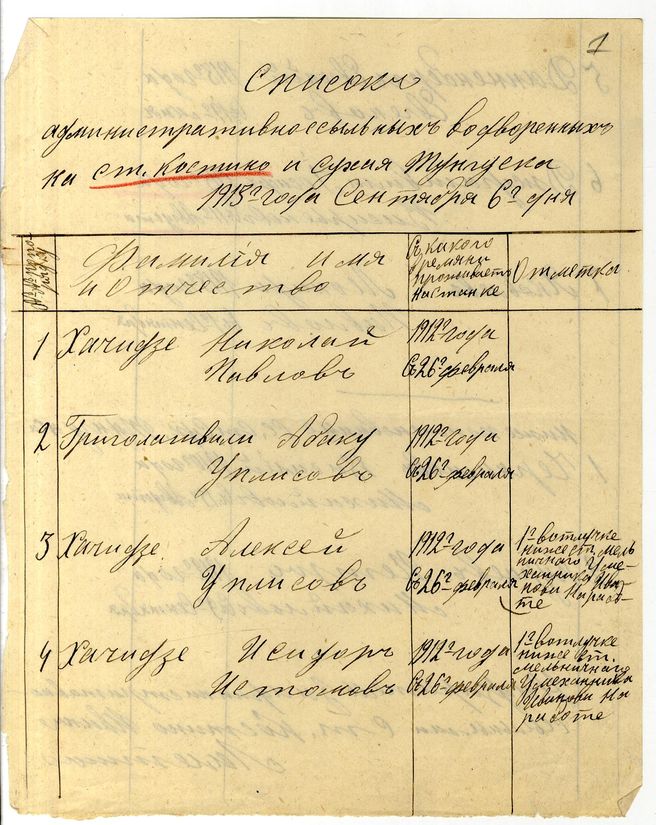 1
Списокъ
административноссыльныхъ водворенныхъ
на ст. Костино и сухая Тунгуска
1913 года Сентября 6 дня
Фамилія имя
и отчество
Съ какого
времяни
проживаетъ
на станке
Отметка
1 Хачидзе Николай
Павловъ
1912 года
Съ 26 февраля
2 Григолашвили Абаку
Уплисовъ
1912 года
Съ 26 февраля
3 Хачидзе Алексей
Уплисовъ
1912 года
Съ 26 февраля
вотлучке
ниже ст. мель
ничнаго У ме-
ханика Ива-
нови На раб
те
4 Хачидзе Исидоръ
Истомовъ
1912 года
Съ 26 февраля
вотлучке
ниже ст.
мельничнаго
У механика
Иванови На
работе